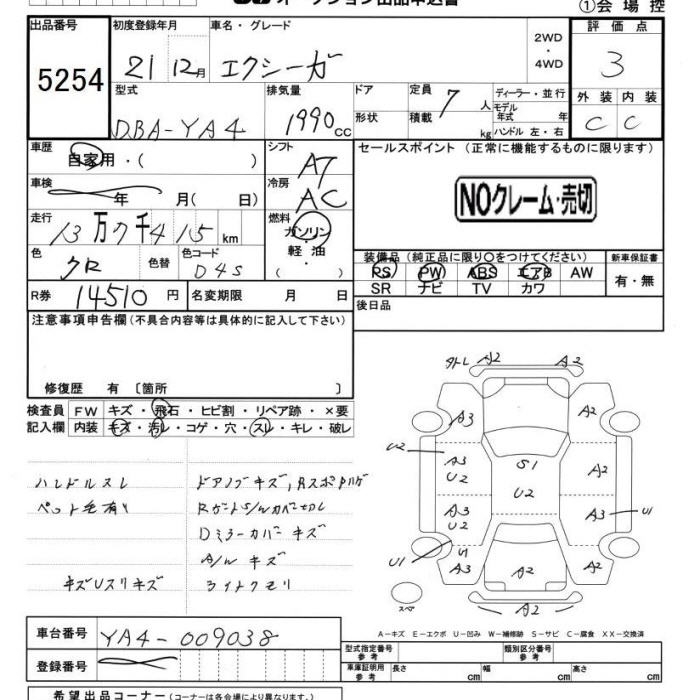 オークション出品申込書
①会場控
出品番号 5254
初度登録年月 21 12月
車名・グレード エクシーガ
2WD・4WD
評価点 3
外装 C 内装 C
型式 DBA-YA4
排気量 1990cc
ドア 形状
定員 7人
積載 kg
ディーラー・並行
モデル年式 年
ハンドル 左・右
車歴 自家用・( )
シフト AT
セールスポイント (正常に機能するものに限ります)
車検 年 月( 日)
冷房 AC
NOクレーム・売切
走行 13万7千415km
燃料 ガソリン・軽油
色 クロ 色替 色コード D4S
装備品 (純正品に限り○をつけてください)
新車保証書
PS PW ABS エアB AW
SR ナビ TV カワ
有・無
R券 14510円 名変期限 月 日
後日品
注意事項申告欄 (不具合内容等は具体的に記入して下さい)
修復歴 有 〔箇所 〕
検査員記入欄
FW キズ・飛石・ヒビ割・リペア跡・×要
内装 キズ・汚レ・コゲ・穴・スレ・キレ・破レ
ハンドルスレ
ペット毛有り
キズUスリキズ
ドアノブキズ,
Dミラーカバーキズ
A/Wキズ
ライトクモリ
外トレ A2 A2
A3 A2
U2 A3 U2 S1 A2
U2
A3 U2 A3 U1
U1 U1 A3 A2 A2
A2
スペア
A-キズ E-エクボ U-凹み W-補修跡 S-サビ C-腐食 XX-交換済
車台番号 YA4-009038
登録番号
型式指定番号 参考
類別区分番号 参考
車庫証明用 参考 長さ cm 幅 cm 高さ cm
希望出品コーナー (コーナーは各会場により異なります。)